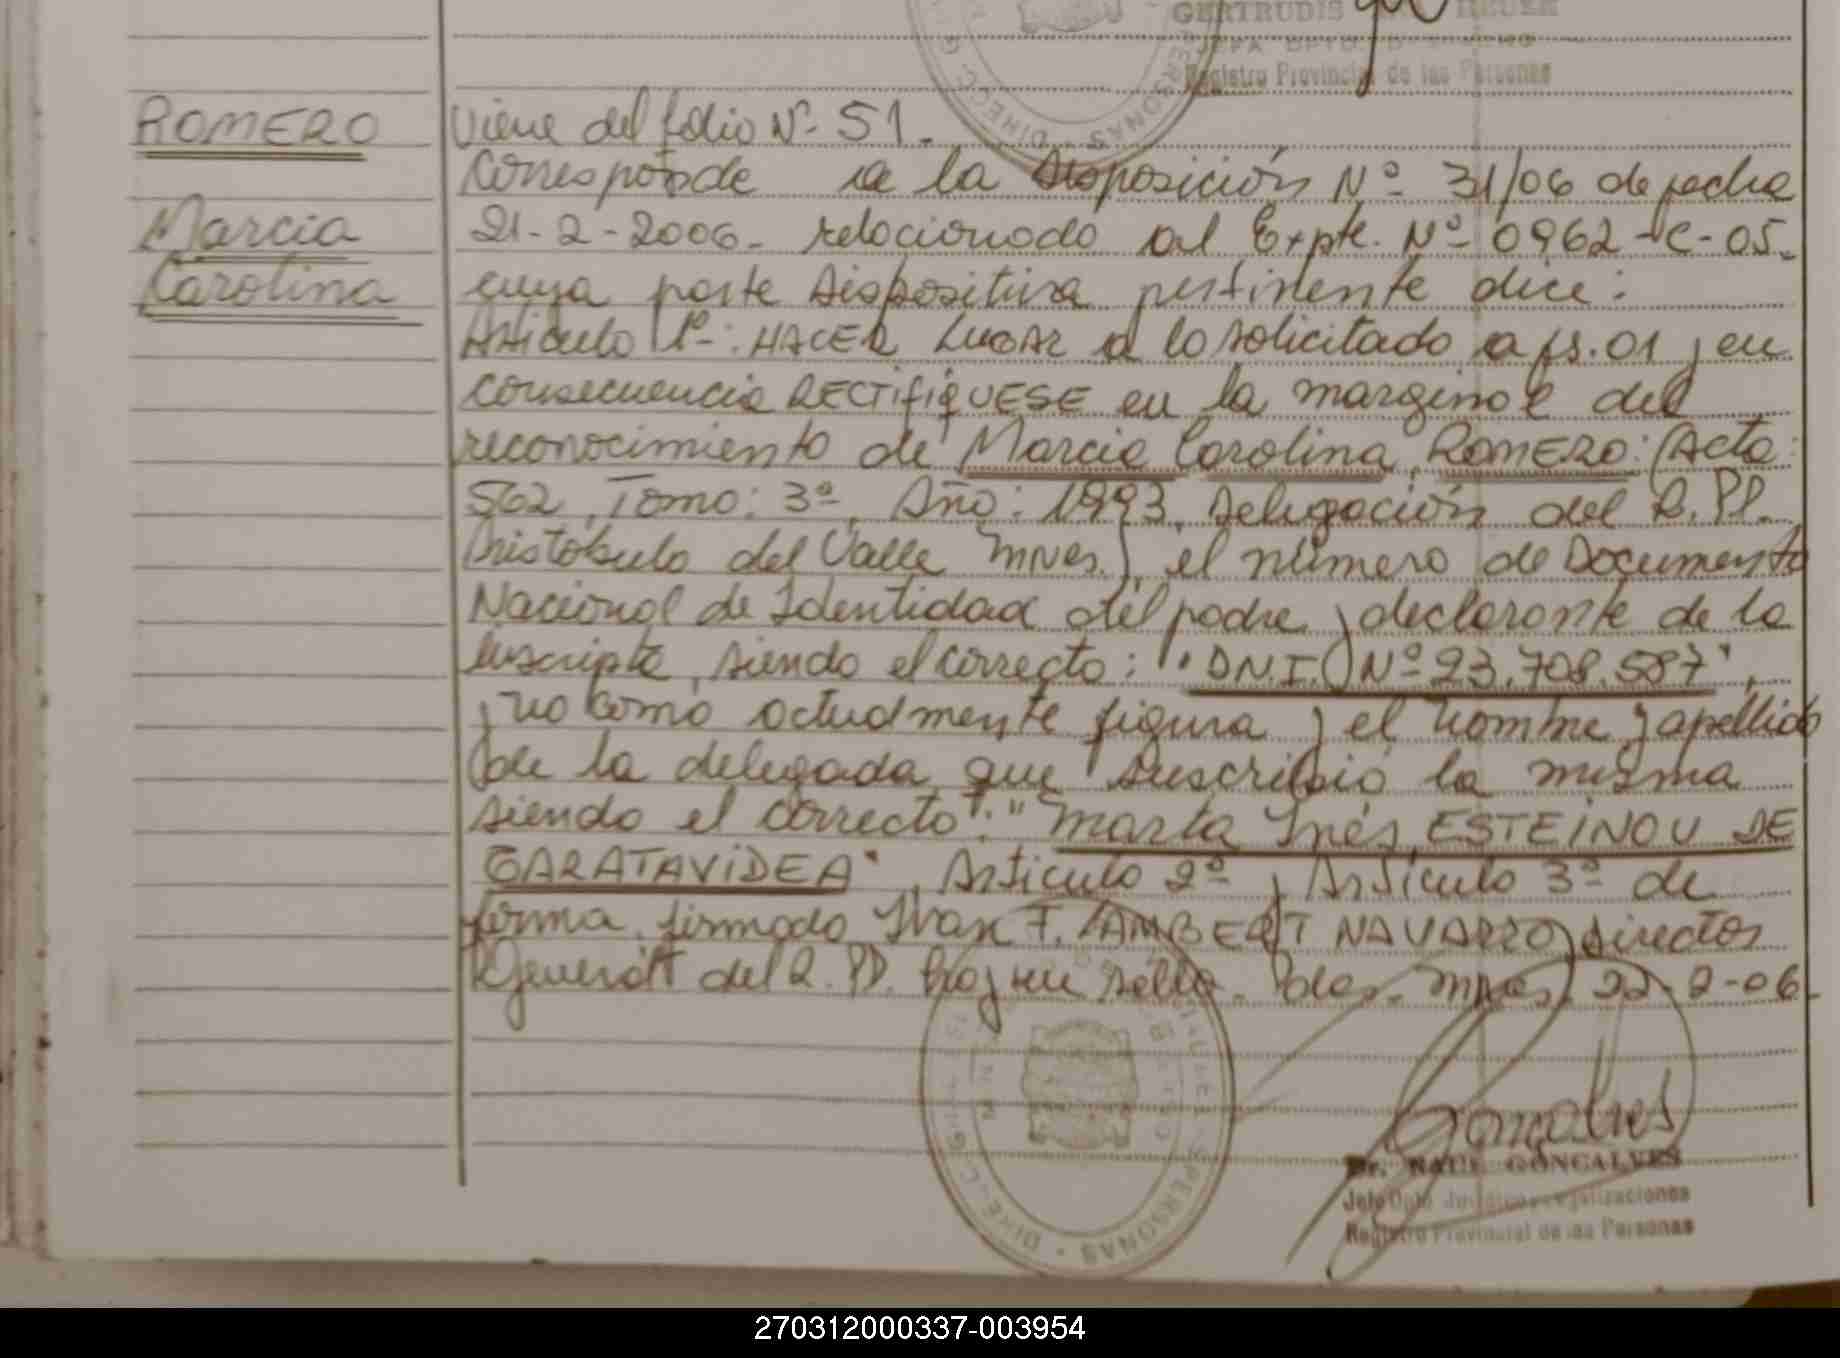 GERTRUDIS
JEFA DPTO.
Registro Provincial de las Personas
ROMERO
Marcia
Carolina
Viene del folio Nº 51.
Corresponde a la Disposición Nº 31/06 de fecha
21-2-2006- relacionado al Expte. Nº 0962-C-05-
cuya parte dispositiva pertinente dice:
Artículo 1º: HACER LUGAR a lo solicitado a fs. 01 y en
consecuencia RECTIFIQUESE en la marginal del
reconocimiento de Marcia Carolina ROMERO: (Acta:
562, Tomo: 3º, Año: 1993, Delegación del R.PP.
Aristóbulo del Valle Mnes.), el número de Documento
Nacional de Identidad del padre y declarante de la
inscripta, siendo el correcto: "D.N.I. Nº 23.708.587",
y no como actualmente figura y el nombre y apellido
de la delegada que suscribió la misma
siendo el correcto: "Marta Inés ESTEINOU DE
GARATAVIDEA", Artículo 2º y Artículo 3º de
forma, firmado Ivan F. LAMBERT NAVARRO, Director
General del R.PP. Hay un sello. Pdas. Mnes, 22-2-06.
Goncalves
Dr. RAUL GONCALVES
Jefe Dpto Jurídico y Legalizaciones
Registro Provincial de las Personas
270312000337-003954